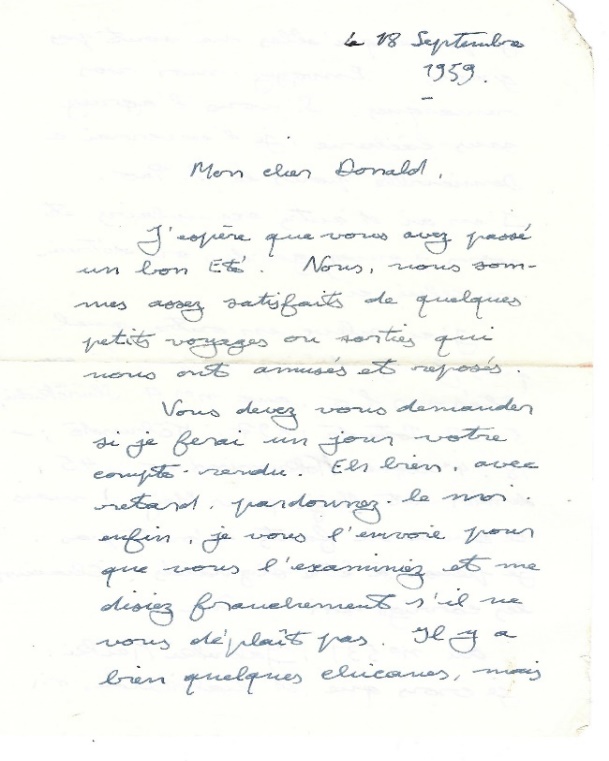 le 18 Septembre
1959.
Mon cher Donald,
J'espère que vous avez passé
un bon Eté. Nous, nous som-
mes assez satisfaits de quelques
petits voyages ou sorties qui
nous ont amusés et reposés.
Vous devez vous demander
si je ferai un jour votre
compte-rendu. Eh bien, avec
retard, pardonnez-le moi,
enfin, je vous l'envoie pour
que vous l'examiniez et me
disiez franchement s'il ne
vous déplaît pas. Il y a
bien quelques chicanes, mais